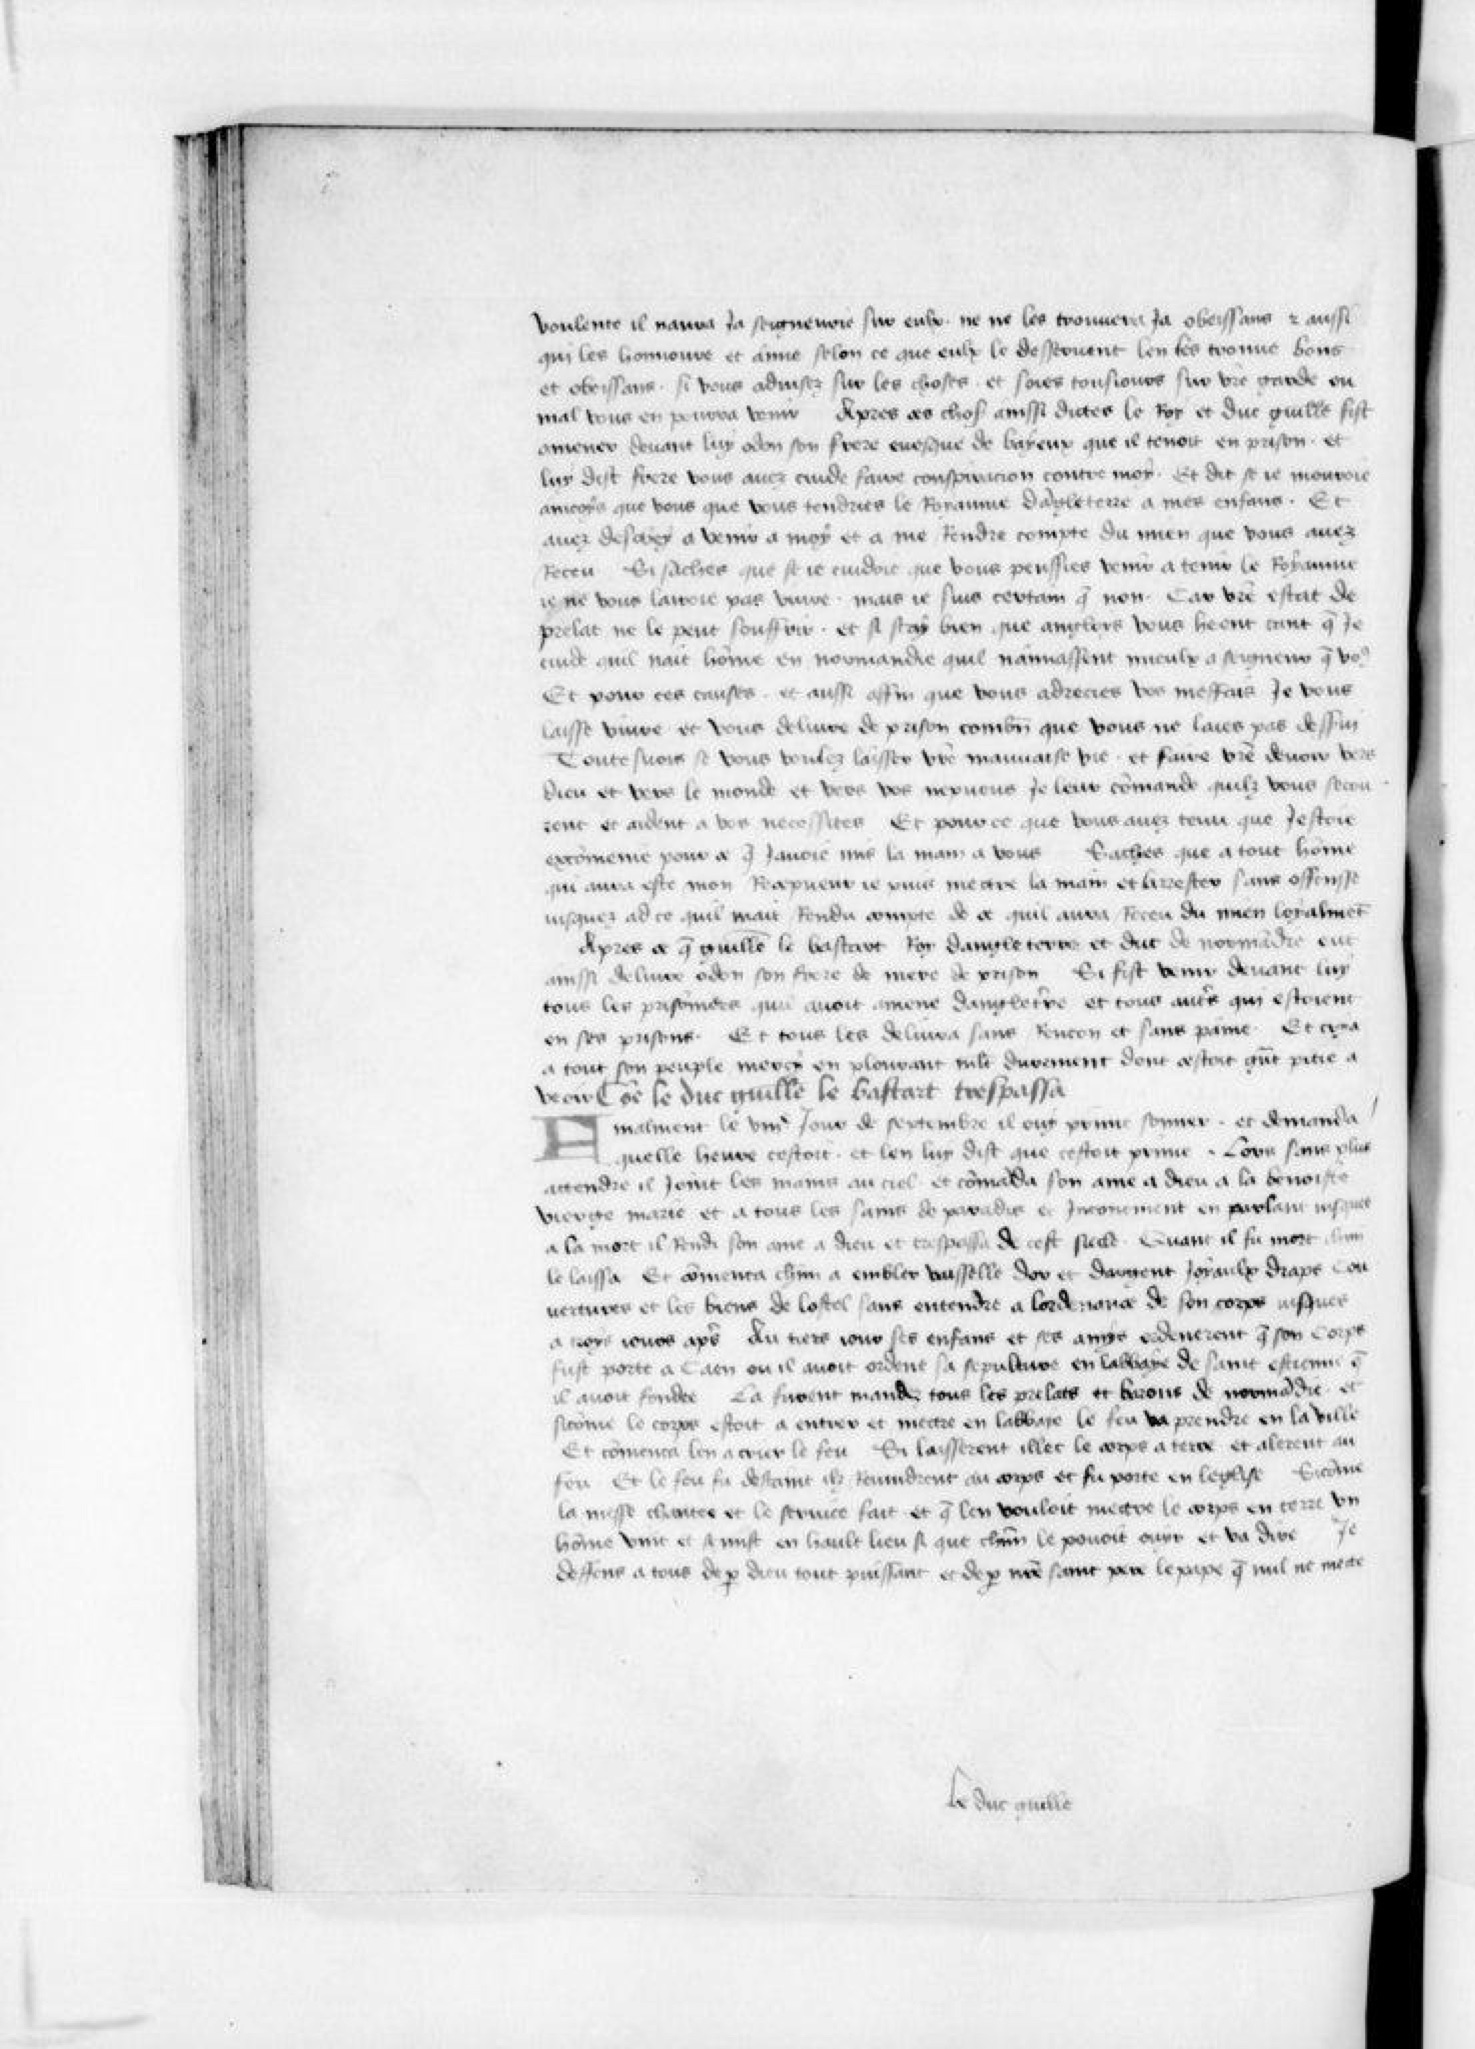 voulente il naura ja seigneurie sur eulx . ne ne les trouuera ja obeissans z aussi
qui les honnoure et aime selon ce que eulx le desseruent len les trouue bons
et obeissans . si vous aduisez sur les choses . et soies tousiours sur vr̃e garde ou
mal vous en pourra venir Apres ces chos̃ ainssi dictes le Roy et duc guill̃e fist
amener deuant luy odon son frere euesque de bayeux que il tenoit en prison . et
luy dist frere vous auez cuide faire conspiracion contre moy . Et dit se ie mouroie
aincoys que vous que vous tendries le Royaume dãgleterre a mes enfans . Et
auez a venir a moy et a me Rendre compte du mien que vous auez
Receu Si saches que se ie cuidoie que vous peussies venir a tenir le Royaume
ie ne vous lairoie pas viure . mais ie suis certain q̃ non . Car vr̃e estat de
prelat ne le peut souffrir . et si scay bien que anglois vous heent tant q̃ Je
cuide quil nait hõme en normandie quil namassent mieulx a seigneur q̃ vo9
Et pour ces causes . et aussi affin que vous adrecies vos meffais Je vous
laisse viure et vous deliure de prison combñ que vous ne laies pas desserui
Toutesuois se vous voulez laisser vr̃e mauuaise vie . et faire vr̃e deuoir vers
dieu et vers le monde et vers vos nepueus Je leur cõmande quilz vous secou
rent et aident a vos necessites Et pource que vous auez tenu que Jestoie
excõmenie pour ce q̃ Jauoie mis la main a vous Saches que a tout hõme
qui aura este mon Recepueur ie puis mectre la main et larrester sans offensse
iusquez ad ce quil mait Rendu compte de ce quil aura Receu du mien loyalmẽt
Apres ce q̃ guill̃e le bastart Roy dangleterre et duc de normãdie eut
ainssi deliure odon son frere de mere de prison Si fist venir deuant luy
tous les prisõniers quil auoit amene danglet̃re et tous autr̃s qui estoient
en ses prisons . Et tous les deliura sans Rencon et sans paine . Et crya
a tout son peuple mercy en plourant mlt̃ durement dont cestoit grãt pitie a
veoir Cõe le duc guill̃e le bastart trespassa
Finalment le viii.e Jour de septembre il ouy prime sonner . et demanda
quelle heure cestoit . et len luy dist que cestoit prime . Lors sans plus
attendre il Joint les mains au ciel et cõmãda son ame a dieu a la benoiste
vierge marie et a tous les sains de paradis et en parlant iusques
a la mort il Rendi son ame a dieu et trespassa de cest siecle . Quant il fu mort chũn
le laissa Et cõmenca chũn a embler vaisselle dor et dargent Joyaulx draps cou
uertures et les biens de lostel sans entendre a lordenance de son corps iusques
a troys iours apr̃s Au tiers iour ses enfans et ses amys ordenerent q̃ son corps
fust porte a Caen ou il auoit ordene sa sepulture en labbaye de saint estienne q̃
il auoit fondee La furent mandez tous les prelats et barons de normãdie . et
sicõme le corps estoit a entrer et mectre en labbaye le feu va prendre en la ville
Et cõmenca len a crier le feu Si laisserent illec le corps a terre et alerent au
feu Et le feu fu destaint ilz Reuindrent au corps et fu porte en leglise Sicõme
la messe chantee et le seruice fait . et q̃ len vouloit mectre le corps en terre vn
hõme vint et se mist en hault lieu si que chũn le pouoit ouyr et va dire Je
deffens a tous de p̱ dieu tout puissant et de p̱ nr̃e saint pere le pape q̃ nul ne mecte
Le duc guill̃e